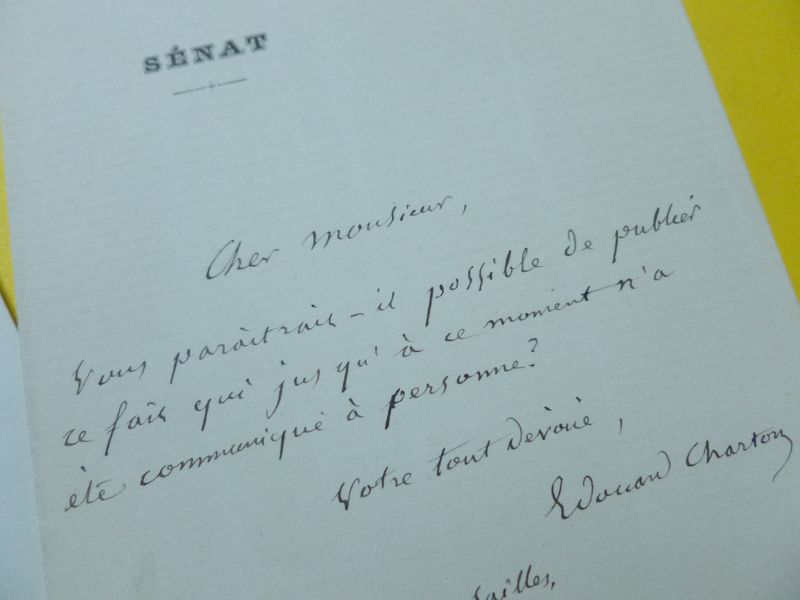 SÉNAT
Cher Monsieur,
Vous paraîtrait-il possible de publier
ce fait qui jusqu'à ce moment n'a
été communiqué à personne?
Votre tout dévoué,
Edouard Charton
sailles,